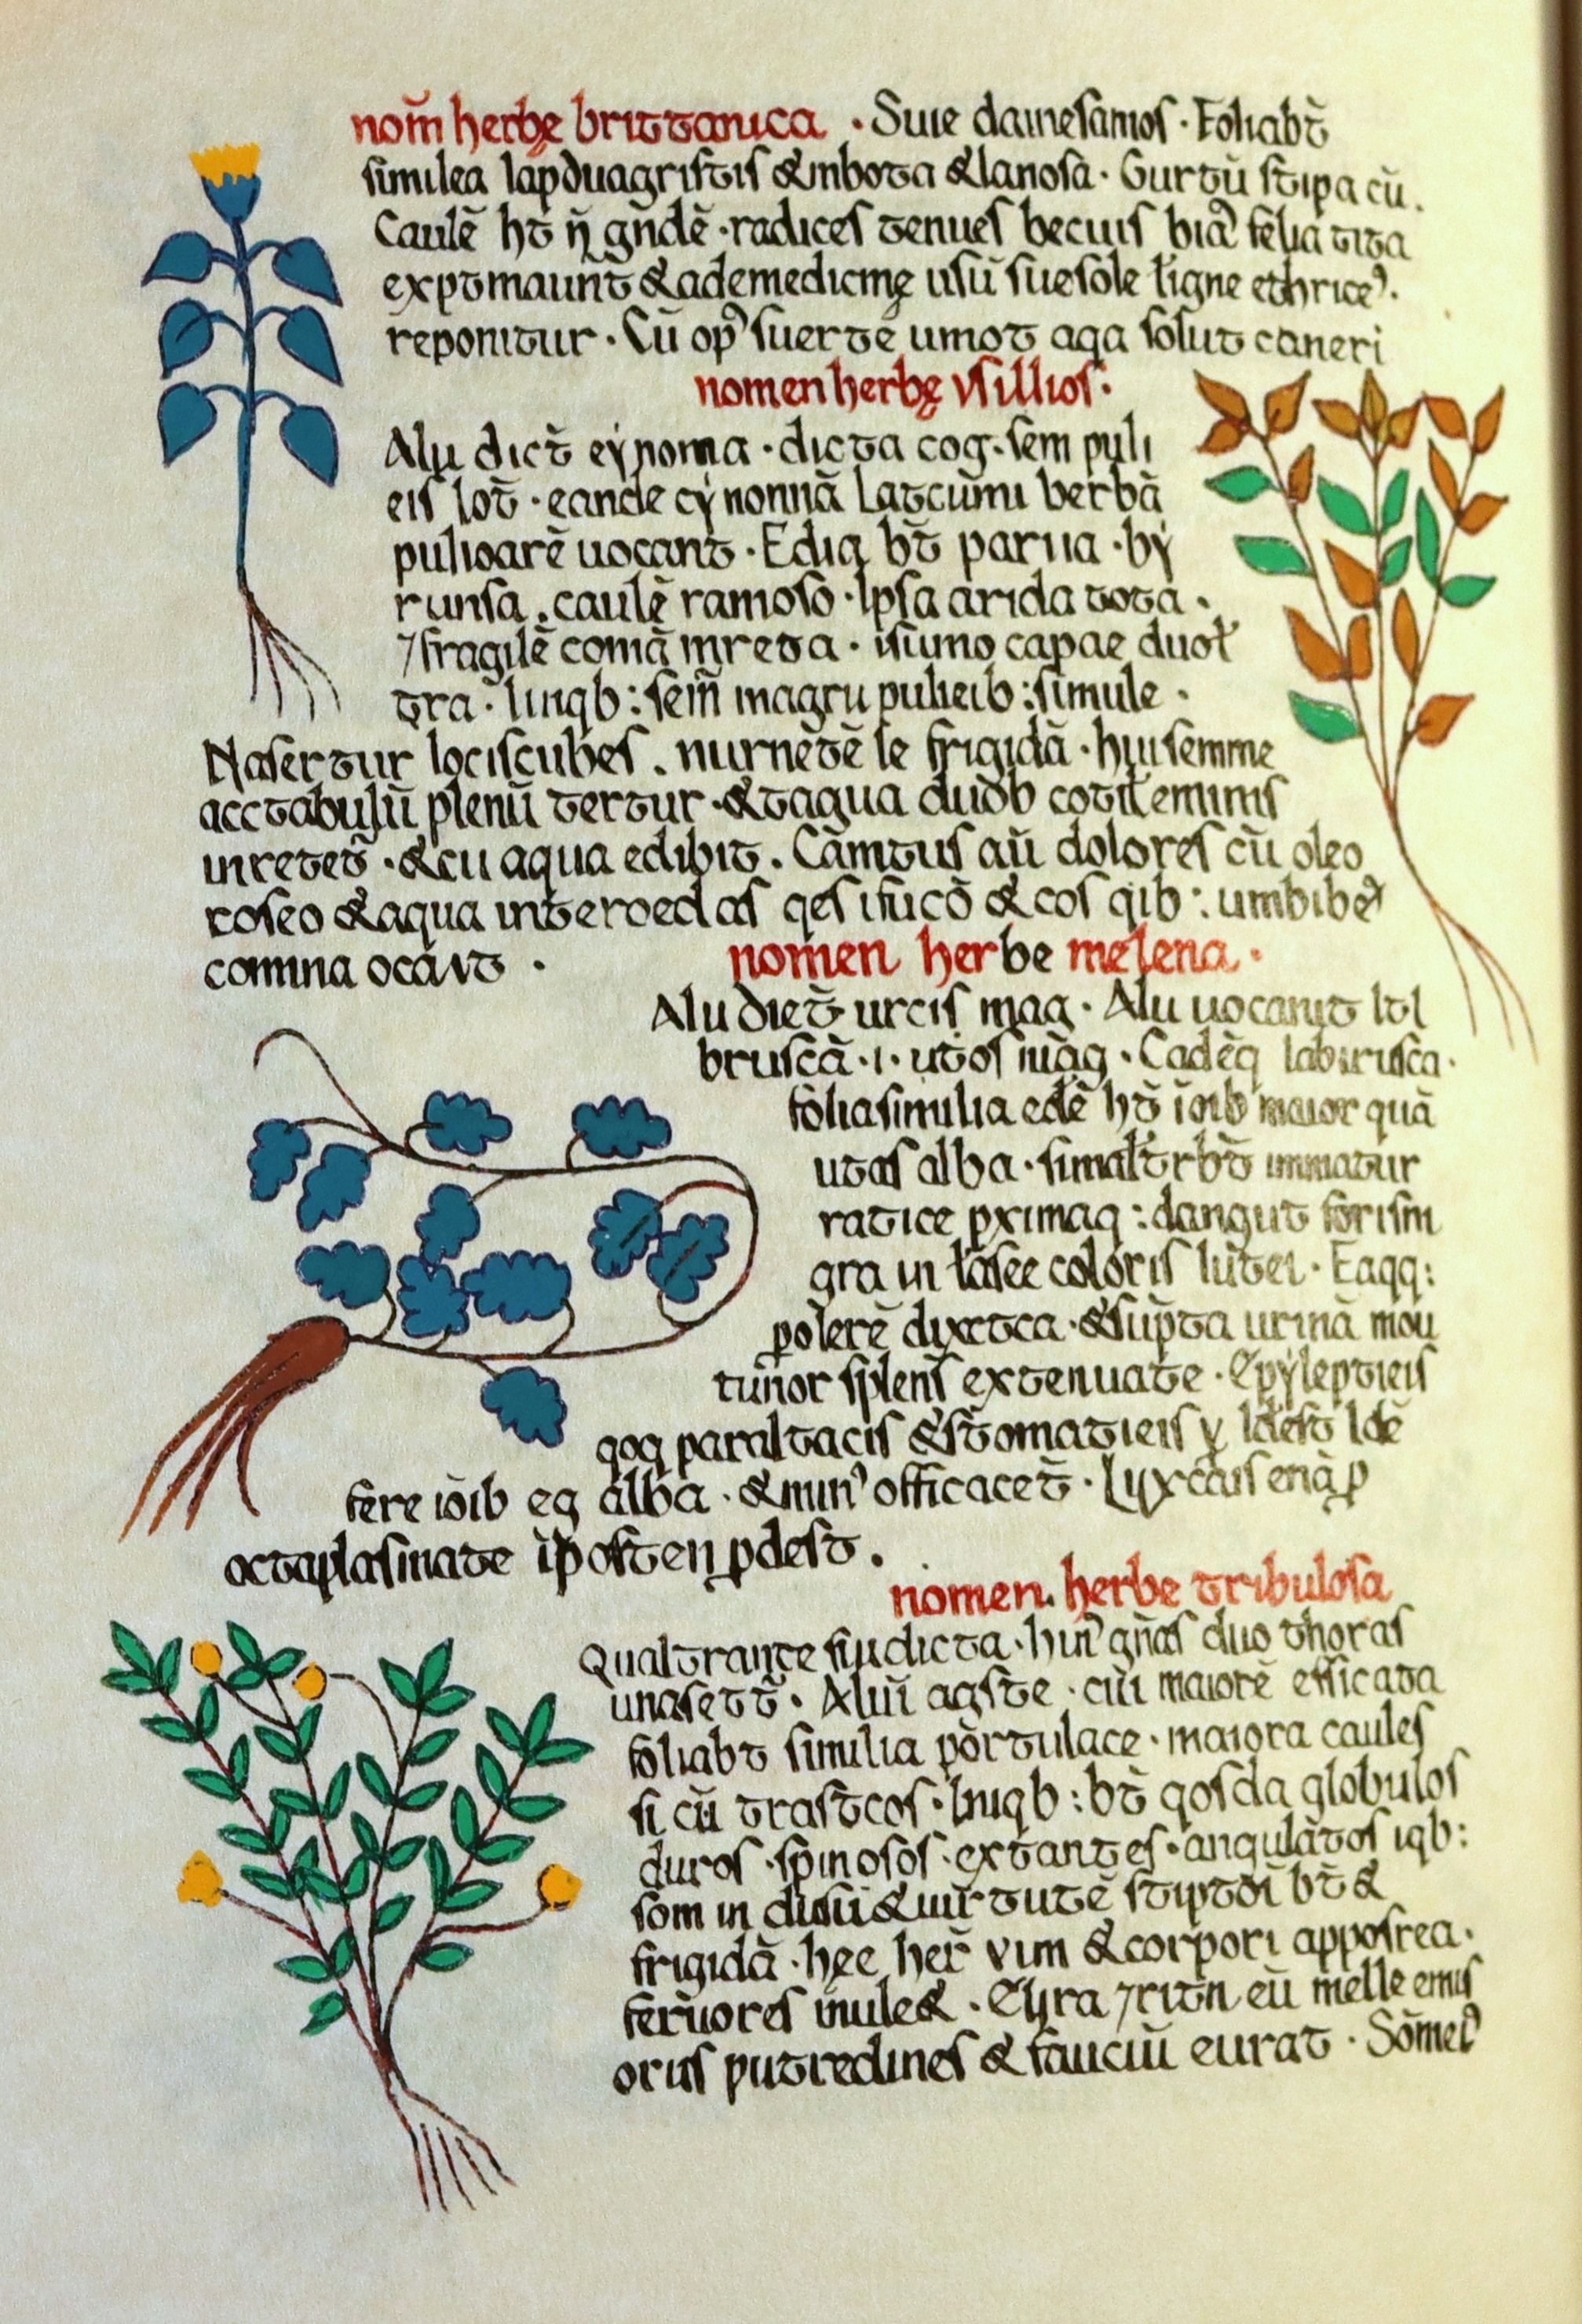 nom̄ herbe brittanica · Suie dainesamos · Foliabt̄
similea lapduagristis &inbota &lanosa · Gurtū stipa cū.
Caulē ht̄ n̄ gñdē · radices tenues becuis bia felia tita
exptmaunt̄ &ademedicinę usū suesole ligne ethrice⁾.
reponitur · Cū op⁾ suertē umot aqa solut caneri
nomen herbę vsillios·
Alu dict̄ eynoma · dicta cog· sem puli
eis lot̄ · eande cynonnā Latcumi berbā
pulioarē uocant · Edia bt̄ parua · by
runsa . caulē ramosō · Ipsa arida tota ·
⁊fragilē comā inreta · isumo capae duol
tra · linqb : sem̄ magru pulieib : simule ·
Nasertur lociscubes . nurnētē le frigidā · hui semme
acctabulū plenū tertur · &tagua duob cotilemims
inretet̄ · &cu aqua edibit . Cāmtus aū dolores cū oleo
roseo &aqua interoedas qes ifucō &cos qib : umbibet
comna ocāvt ·
nomen herbe melena ·
Alu diet̄ urcis mag · Alu uocant ltl
bruscā · i · utos nīag · Cadēq labrusca ·
foliasimilia edē ht̄ ioib maior quā
utas alba · simaltrbt̄ immatur
ratice pximaq : dangut forism
gra in lasee coloris lutei · Eaqq:
polerē dixctca · &supta urinā mou
tumor splenis extenuate · Epyleptieis
qoq paraltacis &stomatieis y ldest ldē
fere ioib eq alba · &nun⁾ officacet̄ · Lyxcais enā p
octaplasinate ipostenpdest .
nomen. herbe tribulosa
Qualtrante siudicta · hin⁾ gñas duo thoras
unasett̄ · Aluī agste · cui maiorē efficata
foliabt similia portulace · maiora caules
si cū trast̄cos · Iniqb : bt̄ qosda globulos
duros · spinosos · extantes · angulātos iqb:
som in disū &uirtutē stiptoī bt̄ &
frigidā · hee her̄ vim &corpori apposrea·
feruores inule& · Elyra ⁊ritn eū melle emis
oris putredines & fauciū eurat · Sōmei⁾